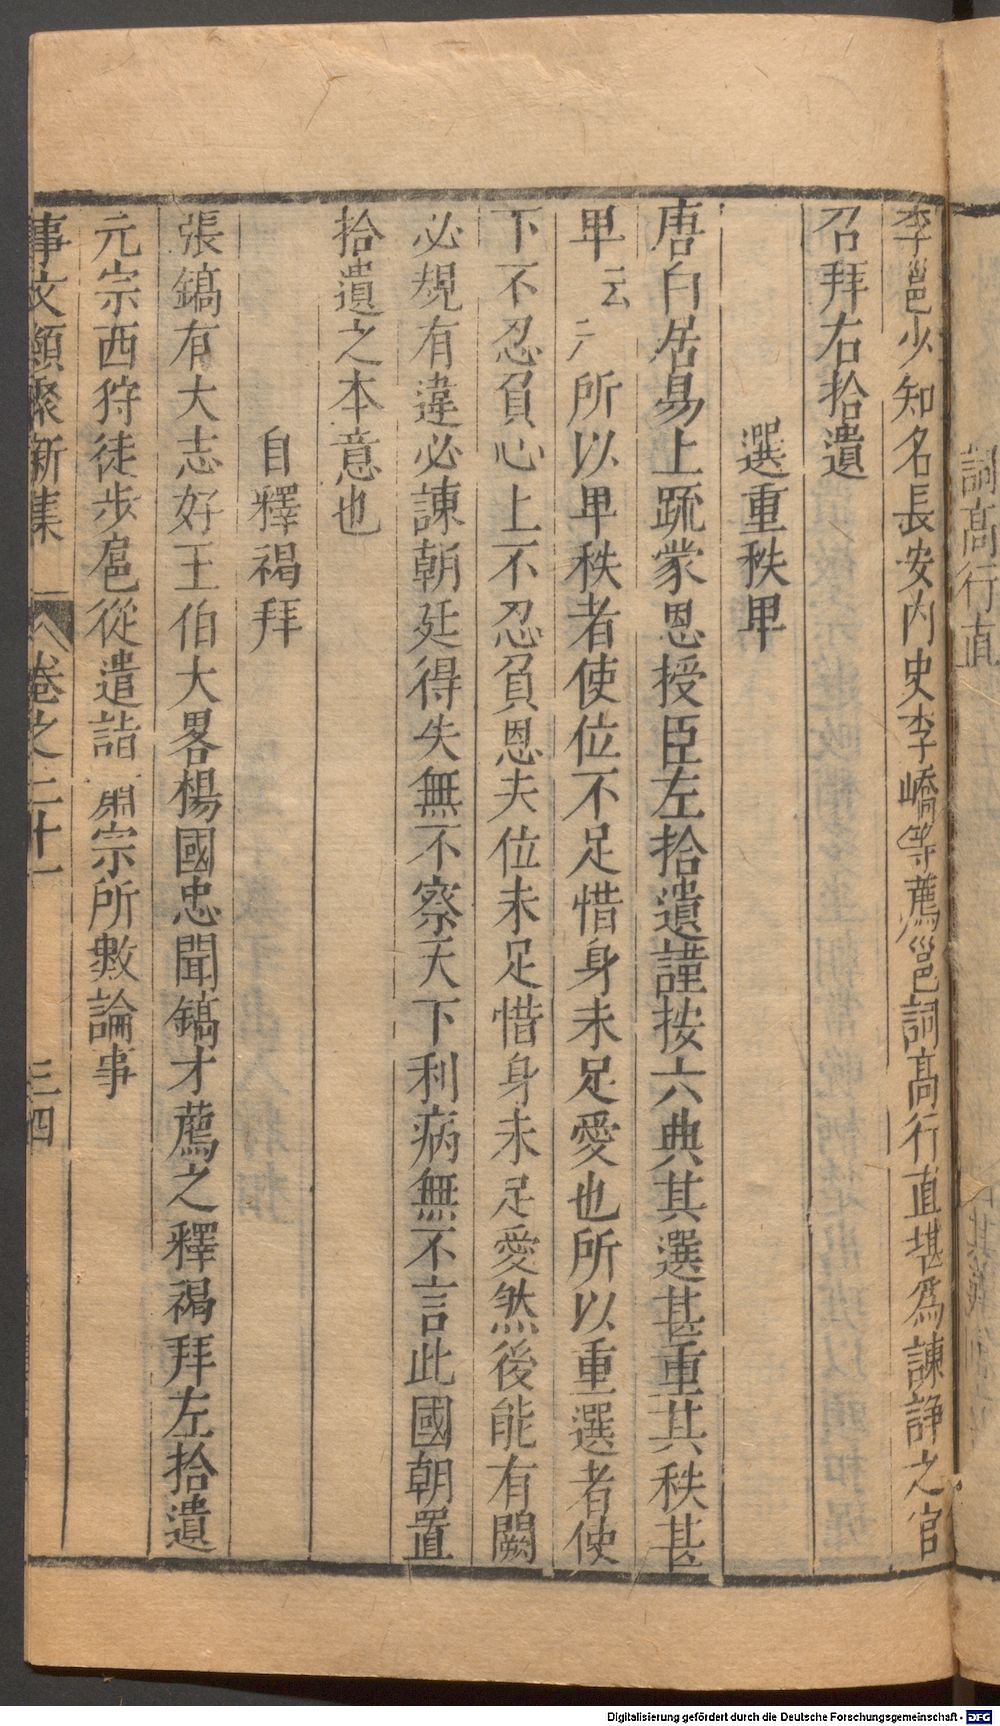 詞髙行直
李邕少知名長安内史李嶠等薦邕詞髙行直堪爲諫諍之官
召拜右拾遺
選重秩卑
唐白居易上疏蒙恩授臣左拾遺謹按六典其選甚重其秩甚
卑云云所以卑秩者使位不足惜身未足愛也所以重選者使
下不忍負心上不忍負恩夫位未足惜身未足愛然後能有闕
必規有違必諫朝廷得失無不察天下利病無不言此國朝置
拾遺之本意也
自釋褐拜
張鎬有大志好王伯大畧楊國忠聞鎬才薦之釋褐拜左拾遺
元宗西狩徒步扈從遣詣肅宗所數論事
事文類聚新集 卷之二十一 三四
Digitalisierung gefördert durch die Deutsche Forschungsgemeinschaft - DFG